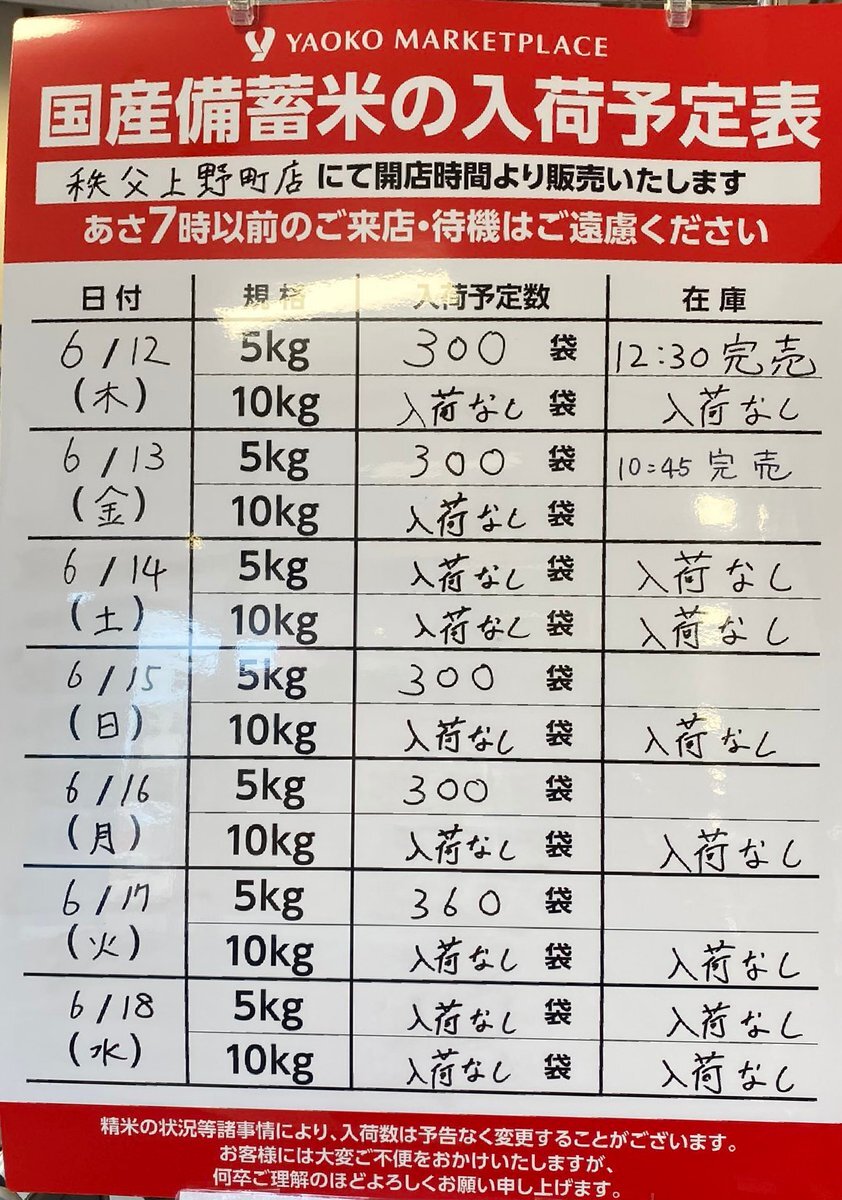 YAOKO MARKETPLACE
国産備蓄米の入荷予定表
秩父上野町店 にて開店時間より販売いたします
あさ7時以前のご来店・待機はご遠慮ください
日付 規格 入荷予定数 在庫
6/12 5kg 300 袋 12:30 完売
(木) 10kg 入荷なし 袋 入荷なし
6/13 5kg 300 袋 10:45 完売
(金) 10kg 入荷なし 袋
6/14 5kg 入荷なし 袋 入荷なし
(土) 10kg 入荷なし 袋 入荷なし
6/15 5kg 300 袋
(日) 10kg 入荷なし 袋 入荷なし
6/16 5kg 300 袋
(月) 10kg 入荷なし 袋 入荷なし
6/17 5kg 360 袋
(火) 10kg 入荷なし 袋 入荷なし
6/18 5kg 入荷なし 袋 入荷なし
(水) 10kg 入荷なし 袋 入荷なし
精米の状況等諸事情により、入荷数は予告なく変更することがございます。
お客様には大変ご不便をおかけいたしますが、
何卒ご理解のほどよろしくお願い申し上げます。